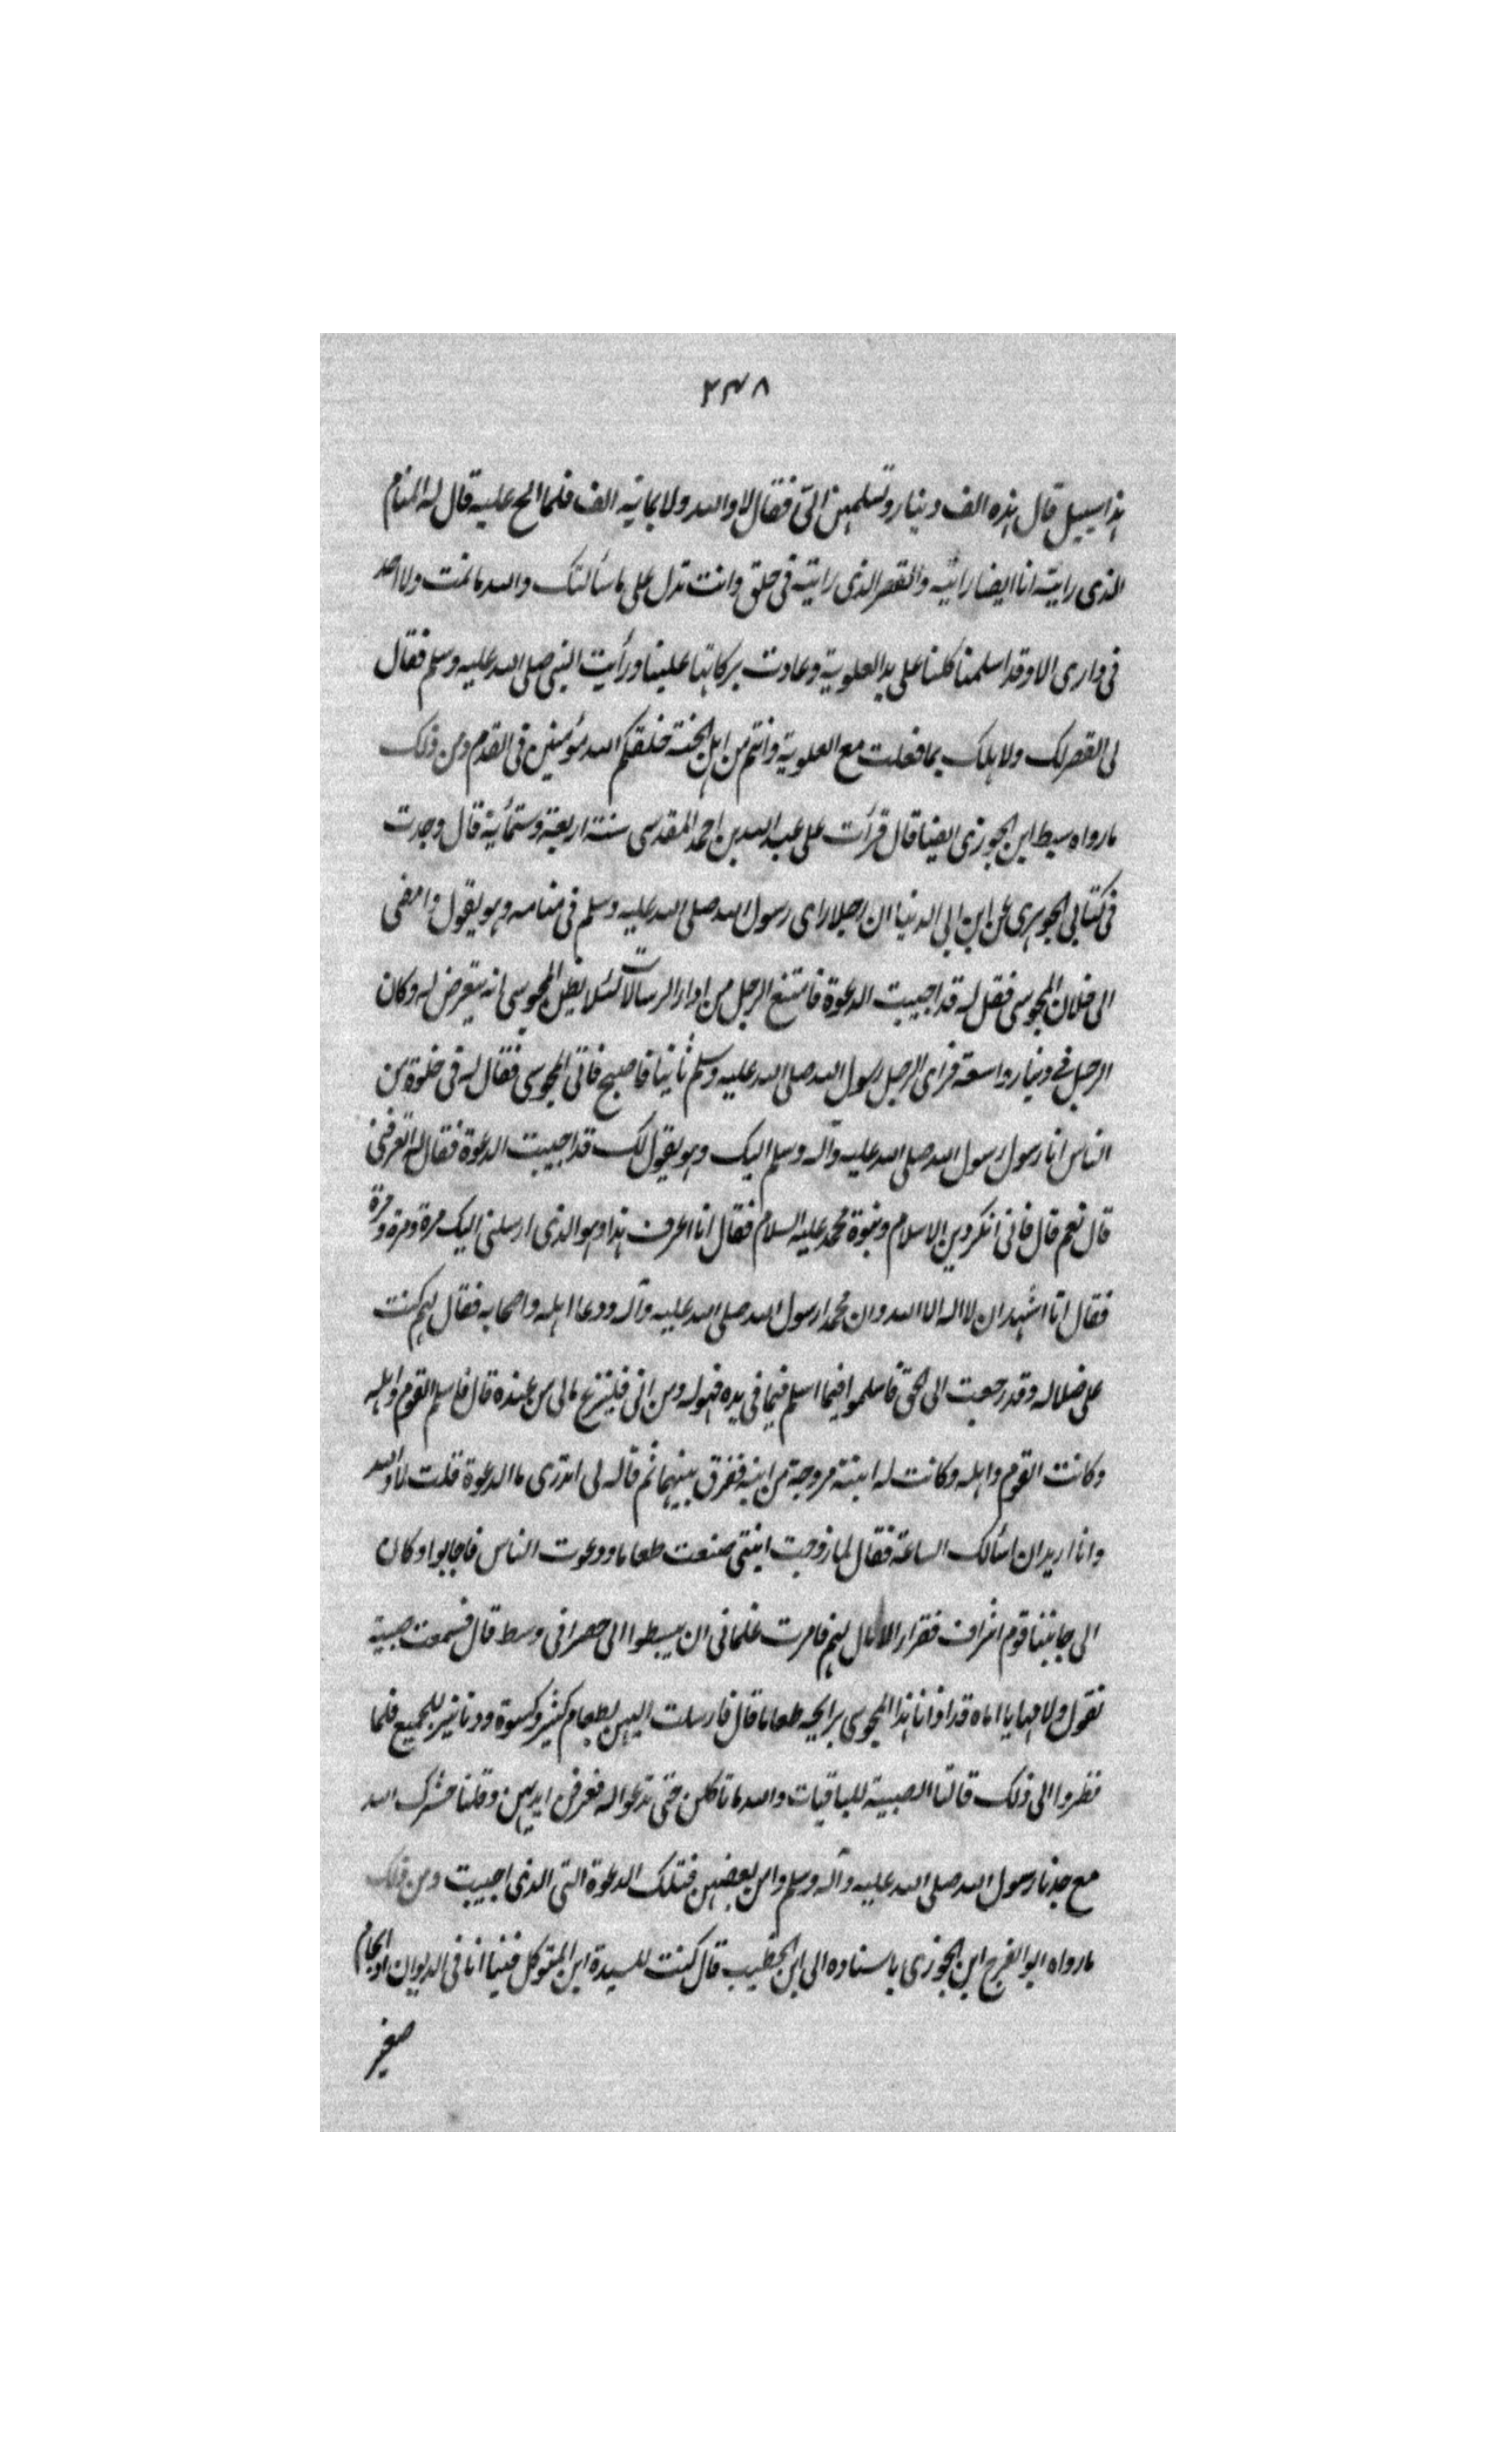 ۲۳۸
هذا سبيل قال هذه الف دينار وتسلمهن الىّ فقال لا والله ولا بماية الف فلما الح عليه قال له المنام
الذى رايته انا ايضا رايته والقصر الذى رايته فى خلق وانت تدل على ما سألتك والله ما نمت ولا احد
فى دارى الا وقد اسلمنا كلنا على يد العلوية وعادت بركاتها علينا ورأيت النبى صلى الله عليه وسلم فقال
لى القصر لك ولاهلك بما فعلت مع العلوية وانتم من اهل الجنة خلقكم الله مؤمنين فى القدم ومن ذلك
ما رواه سبط ابن الجوزى ايضا قال قرأت على عبد الله بن احمد المقدسى سنة اربعة وستمأية قال وجدت
فى كتابى الجوهرى عن ابن ابى الدنيا ان رجلا راى رسول الله صلى الله عليه وسلم فى منامه وهو يقول وامضى
الى فلان المجوسى فقل له قد اجيبت الدعوة فامتنع الرجل من اداء الرسالات لئلا يظن المجوسى انه يتعرض له وكان
الرجل فے دينار واسعة فراى الرجل رسول الله صلى الله عليه وسلم ثانيا فاصبح فاتى المجوسى فقال له فى خلوة من
الناس انا رسول رسول الله صلى الله عليه وآله وسلم اليك وهو يقول لك قد اجيبت الدعوة فقال له اتعرفنى
قال نعم قال فانى انكر دين الاسلام ونبوة محمد عليه السلام فقال انا اعرف هذا وهو الذى ارسلنى اليك مرة ومرة ومرة
فقال انا اشهد ان لا اله الا الله وان محمدا رسول الله صلى الله عليه وآله ودعا اهله واصحابه فقال لهم كنت
على ضلاله وقد رجعت الى الحق فاسلموا فيما اسلم فيما فى يده فهو له ومن ابى فلينزع مالى من عنده قال فاسلم القوم واهله
وكانت القوم واهله وكانت له ابنته مزوجة من ابنه ففرق بينهما ثم قاله لى اتدرى ما الدعوة قلت لا والله
وانا اريد ان اسألك الساعة فقال لما زوجت ابنتى صنعت طعاما ودعوت الناس فاجابوا وكان
الى جانبنا قوم اشراف فقراء لا مال لهم فامرت غلمانى ان يبسطوا الى حصرا فى وسط قال فسمعت صبية
تقول ولامها يا اماه قد اذانا هذا المجوسى برايحه طعاما قال فارسلت اليهن بطعام كثير وكسوة ودنانير للجميع فلما
نظروا الى ذلك قالتا الصبية للباقيات والله ما تاكلن حتى تدعوا له فعرفن ايديهن وقلنا حشرك الله
مع جدنا رسول الله صلى الله عليه وآله وسلم وامن بعضهن فتلك الدعوة التى الذى اجيبت ومن ذلك
ما رواه ابو الفرج ابن الجوزى باسناده الى ابن الخطيب قال كنت للسيدة ابن المتوكل فبينا انا فى الديوان
صغير